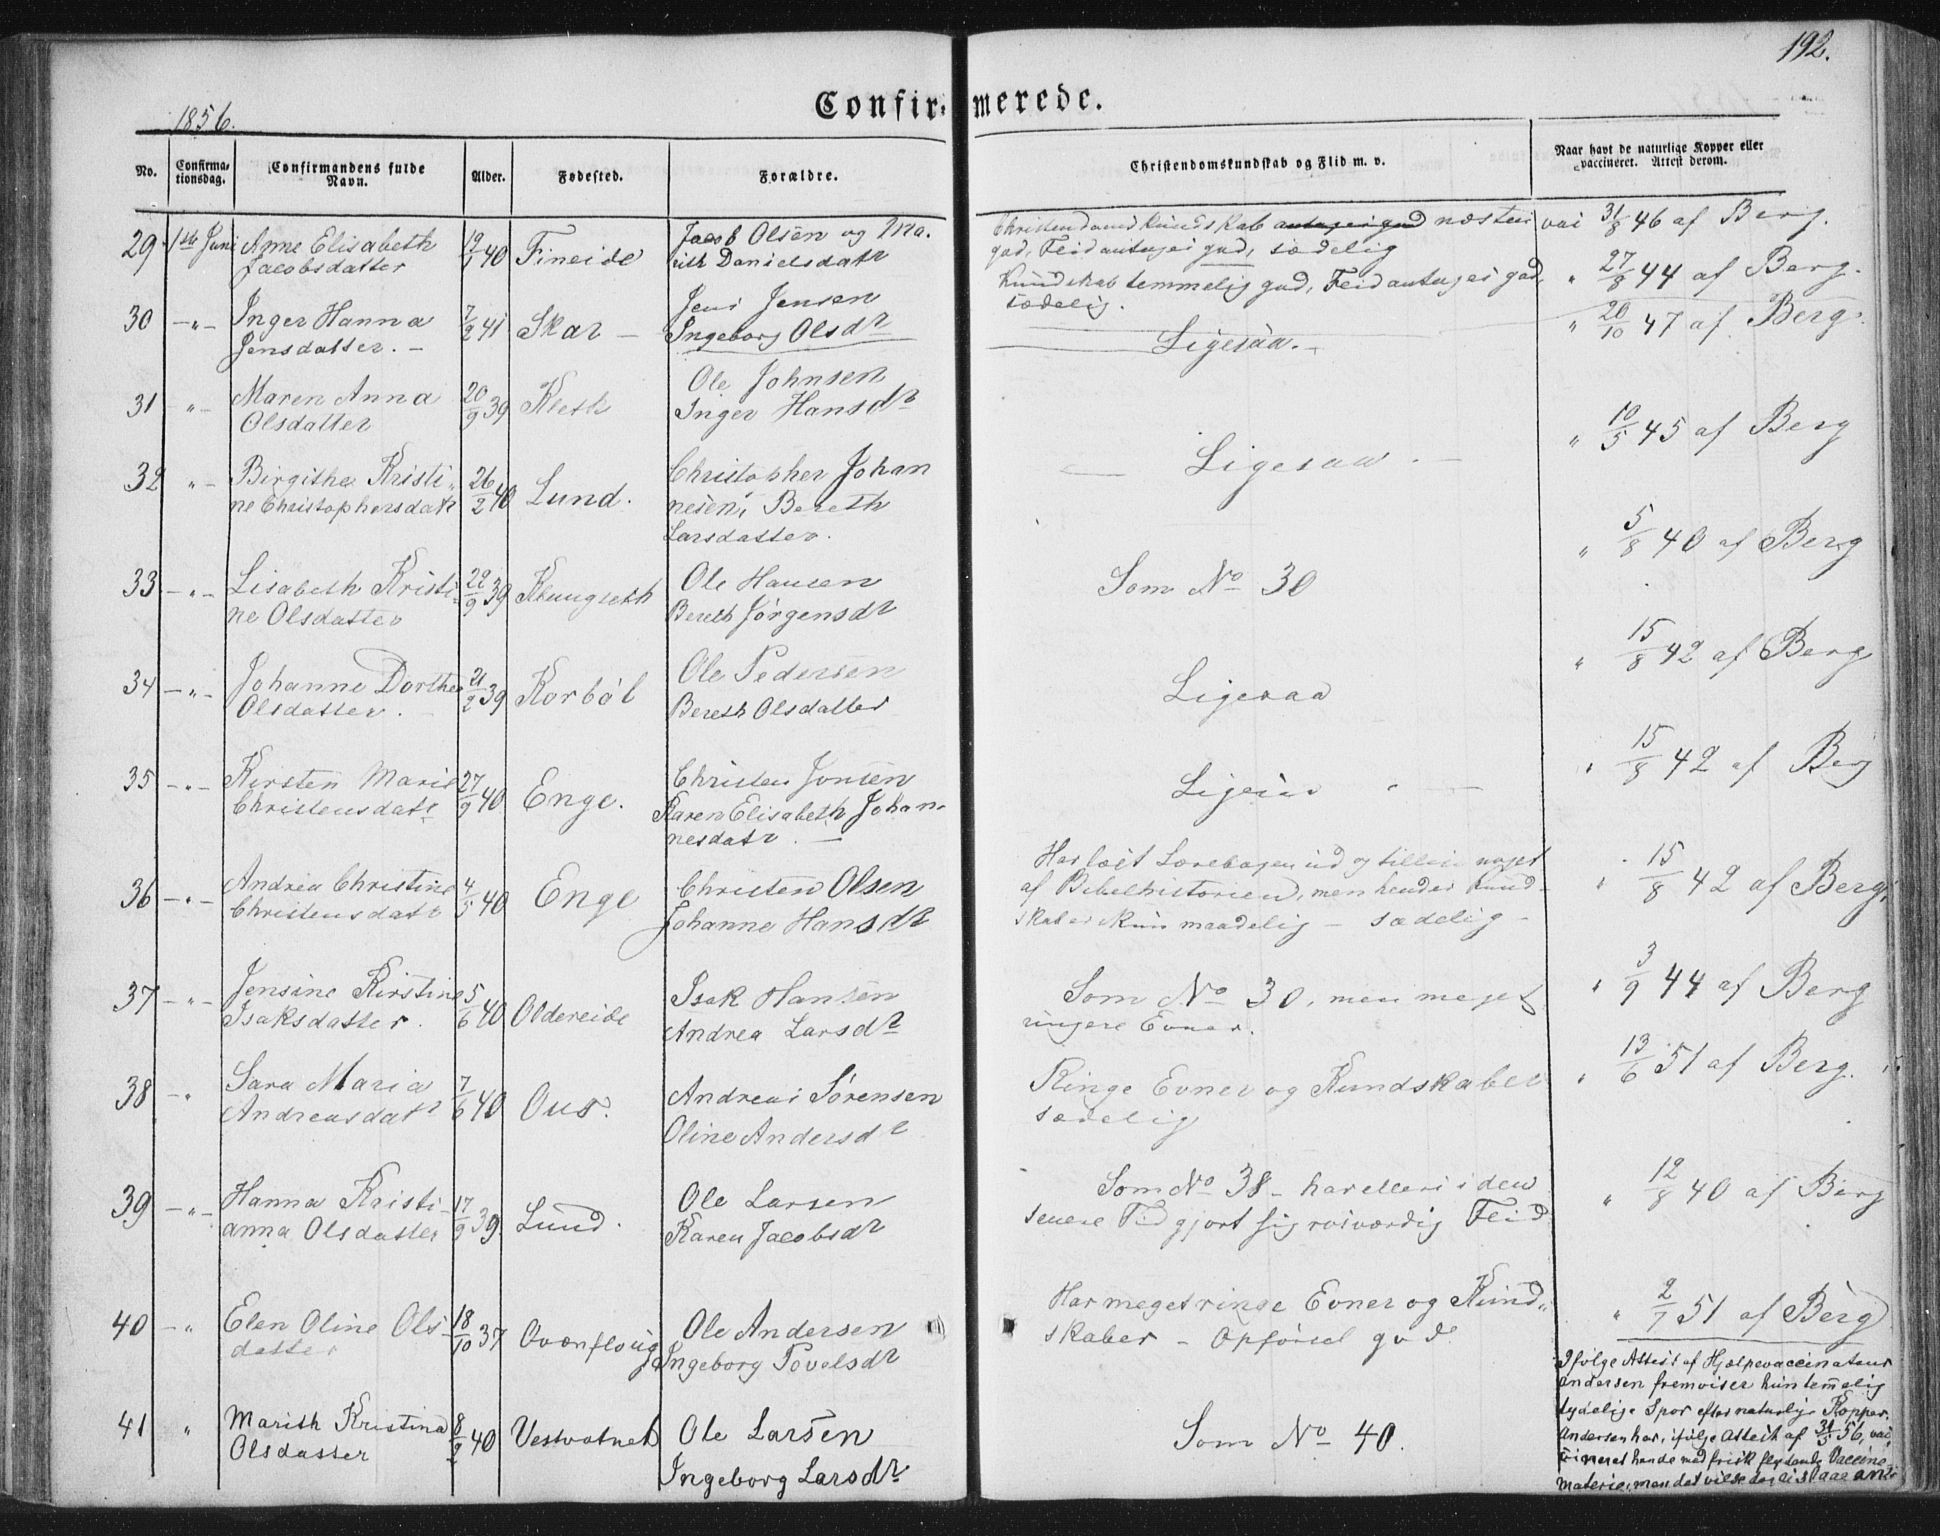 192.
1856.
Confir- merede.
No.
Confirma-
tionsdag.
Confirmandens fulde
Navn.
Alder.
Fødested.
Forældre.
Christendomskundskab og Flid m. v.
Naar havt de naturlige Kopper eller
vaccineret. Attest derom.
29 1ste Juni Anne Elisabeth
Jacobsdatter
19/1 40 Fineide
Jacob Olsen og Ma.
rith Danielsdatr
Christendomskundskab antages god næsten
god, Flid antages god, sædelig
vac 31/8 46 af Berg.
30 — „ — Inger Hanna
Jensdatter. —
7/2 41 Skar —
Jens Jensen
Ingeborg Olsdr
Kundskab temmelig god, Flid antages god,
sædelig.
„ 27/8 44 af Berg.
31 „ — Maren Anna
Olsdatter
20/9 39 Kleth
Ole Johnsen
Inger Hansdr
Ligesaa. —
„ 20/10 47 af Berg.
32 „ — Birgithe Kristi-
ne Christophersdatr
26/2 40 Lund.
Christopher Johan
nesen, Bereth
Larsdatter.
Ligesaa. —
„ 10/5 45 af Berg
33 — „ — Lisabeth Kristi-
ne Olsdatter
22/9 39 Klungseth
Ole Hansen
Bereth Jørgensdr
Som No 30
„ 5/8 40 af Berg
34 — „ — Johanne Dorthea
Olsdatter. —
21/2 39 Korbøl
Ole Pedersen
Bereth Olsdatter
Ligesaa
„ 15/8 42 af Berg
35 — „ — Kirsten Marie
Christensdatr
27/9 40 Enge.
Christen Jonsen
Karen Elisabeth Johan-
nesdatr. —
Ligesaa
„ 15/8 42 af Berg
36 — „ — Andrea Christine
Christensdatr
4/5 40 Enge
Christen Olsen
Johanne Hansdr
Har læst Lærebogen ud og tillige noget
af Bibelhistorien, men hendes Kund-
skab er kun maadelig — sædelig —
„ 15/8 42 af Berg.
37 — „ — Jensine Kirstine
Isaksdatter.
5/6 40 Oldereide
Isak Hansen
Andrea Larsdr
Som No 30, men meget
ringere Evner.
„ 3/9 44 af Berg
38 „ Sara Maria
Andreasdatr
7/6 40 Ous.
Andreas Sørensen
Oline Andersdr
Ringe Evner og Kundskaber
sædelig
„ 13/6 51 af Berg.
39 — „ — Hanna Kristi-
anna Olsdatter
17/9 39 Lund.
Ole Larsen
Karen Jacobsdr
Som No 38 — har ellers i den
senere Tid gjort sig Flid
„ 12/8 40 af Berg
40 „ — Elen Oline Ols
datter
18/10 37
Ole Andersen
Ingeborg Povelsdr
Har meget ringe Evner og Kund-
skaber — Opførsel god
„ 2/7 51 af Berg
41 „ Marith Kristina
Olsdatter
8/2 40 Vestvatnet
Ole Larsen
Ingeborg Larsdr
Som No 40.
Ifølge Attest af Hjælpevaccinateur
Andersen fremviser hun temmelig
tydelige Spor efter naturlige Kopper.
Andersen har, ifølge Attest af 31/5 56, vac
cineret hende med frisk flydende Vaccine
materie, men det vilde dog ei slaae an